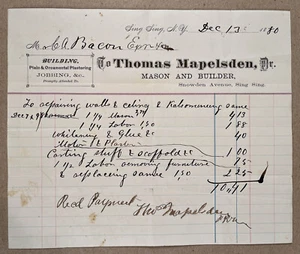 Sing Sing, N.Y. Dec 13 1880
Mr C A Bacon
To Thomas Mapelsden, Dr.
BUILDING,
Plain & Ornamental Plastering
JOBBING, &c.
Promptly Attended To.
MASON AND BUILDER,
Snowden Avenue, Sing Sing.
To repairing walls & celing & Kalsomening same
Dec 7 & 9 1 1/4 Mason 4.13
1 1/4 Labor 1.50 1.88
Whitening & Glue &c 40
Mortar & Plaster
Carting stuff & scaffold &c 1.00
1/2 Labor removing furniture 75
& replaceing same 1.50 2.25
10.41
Recd Payment
Thos Mapelsden